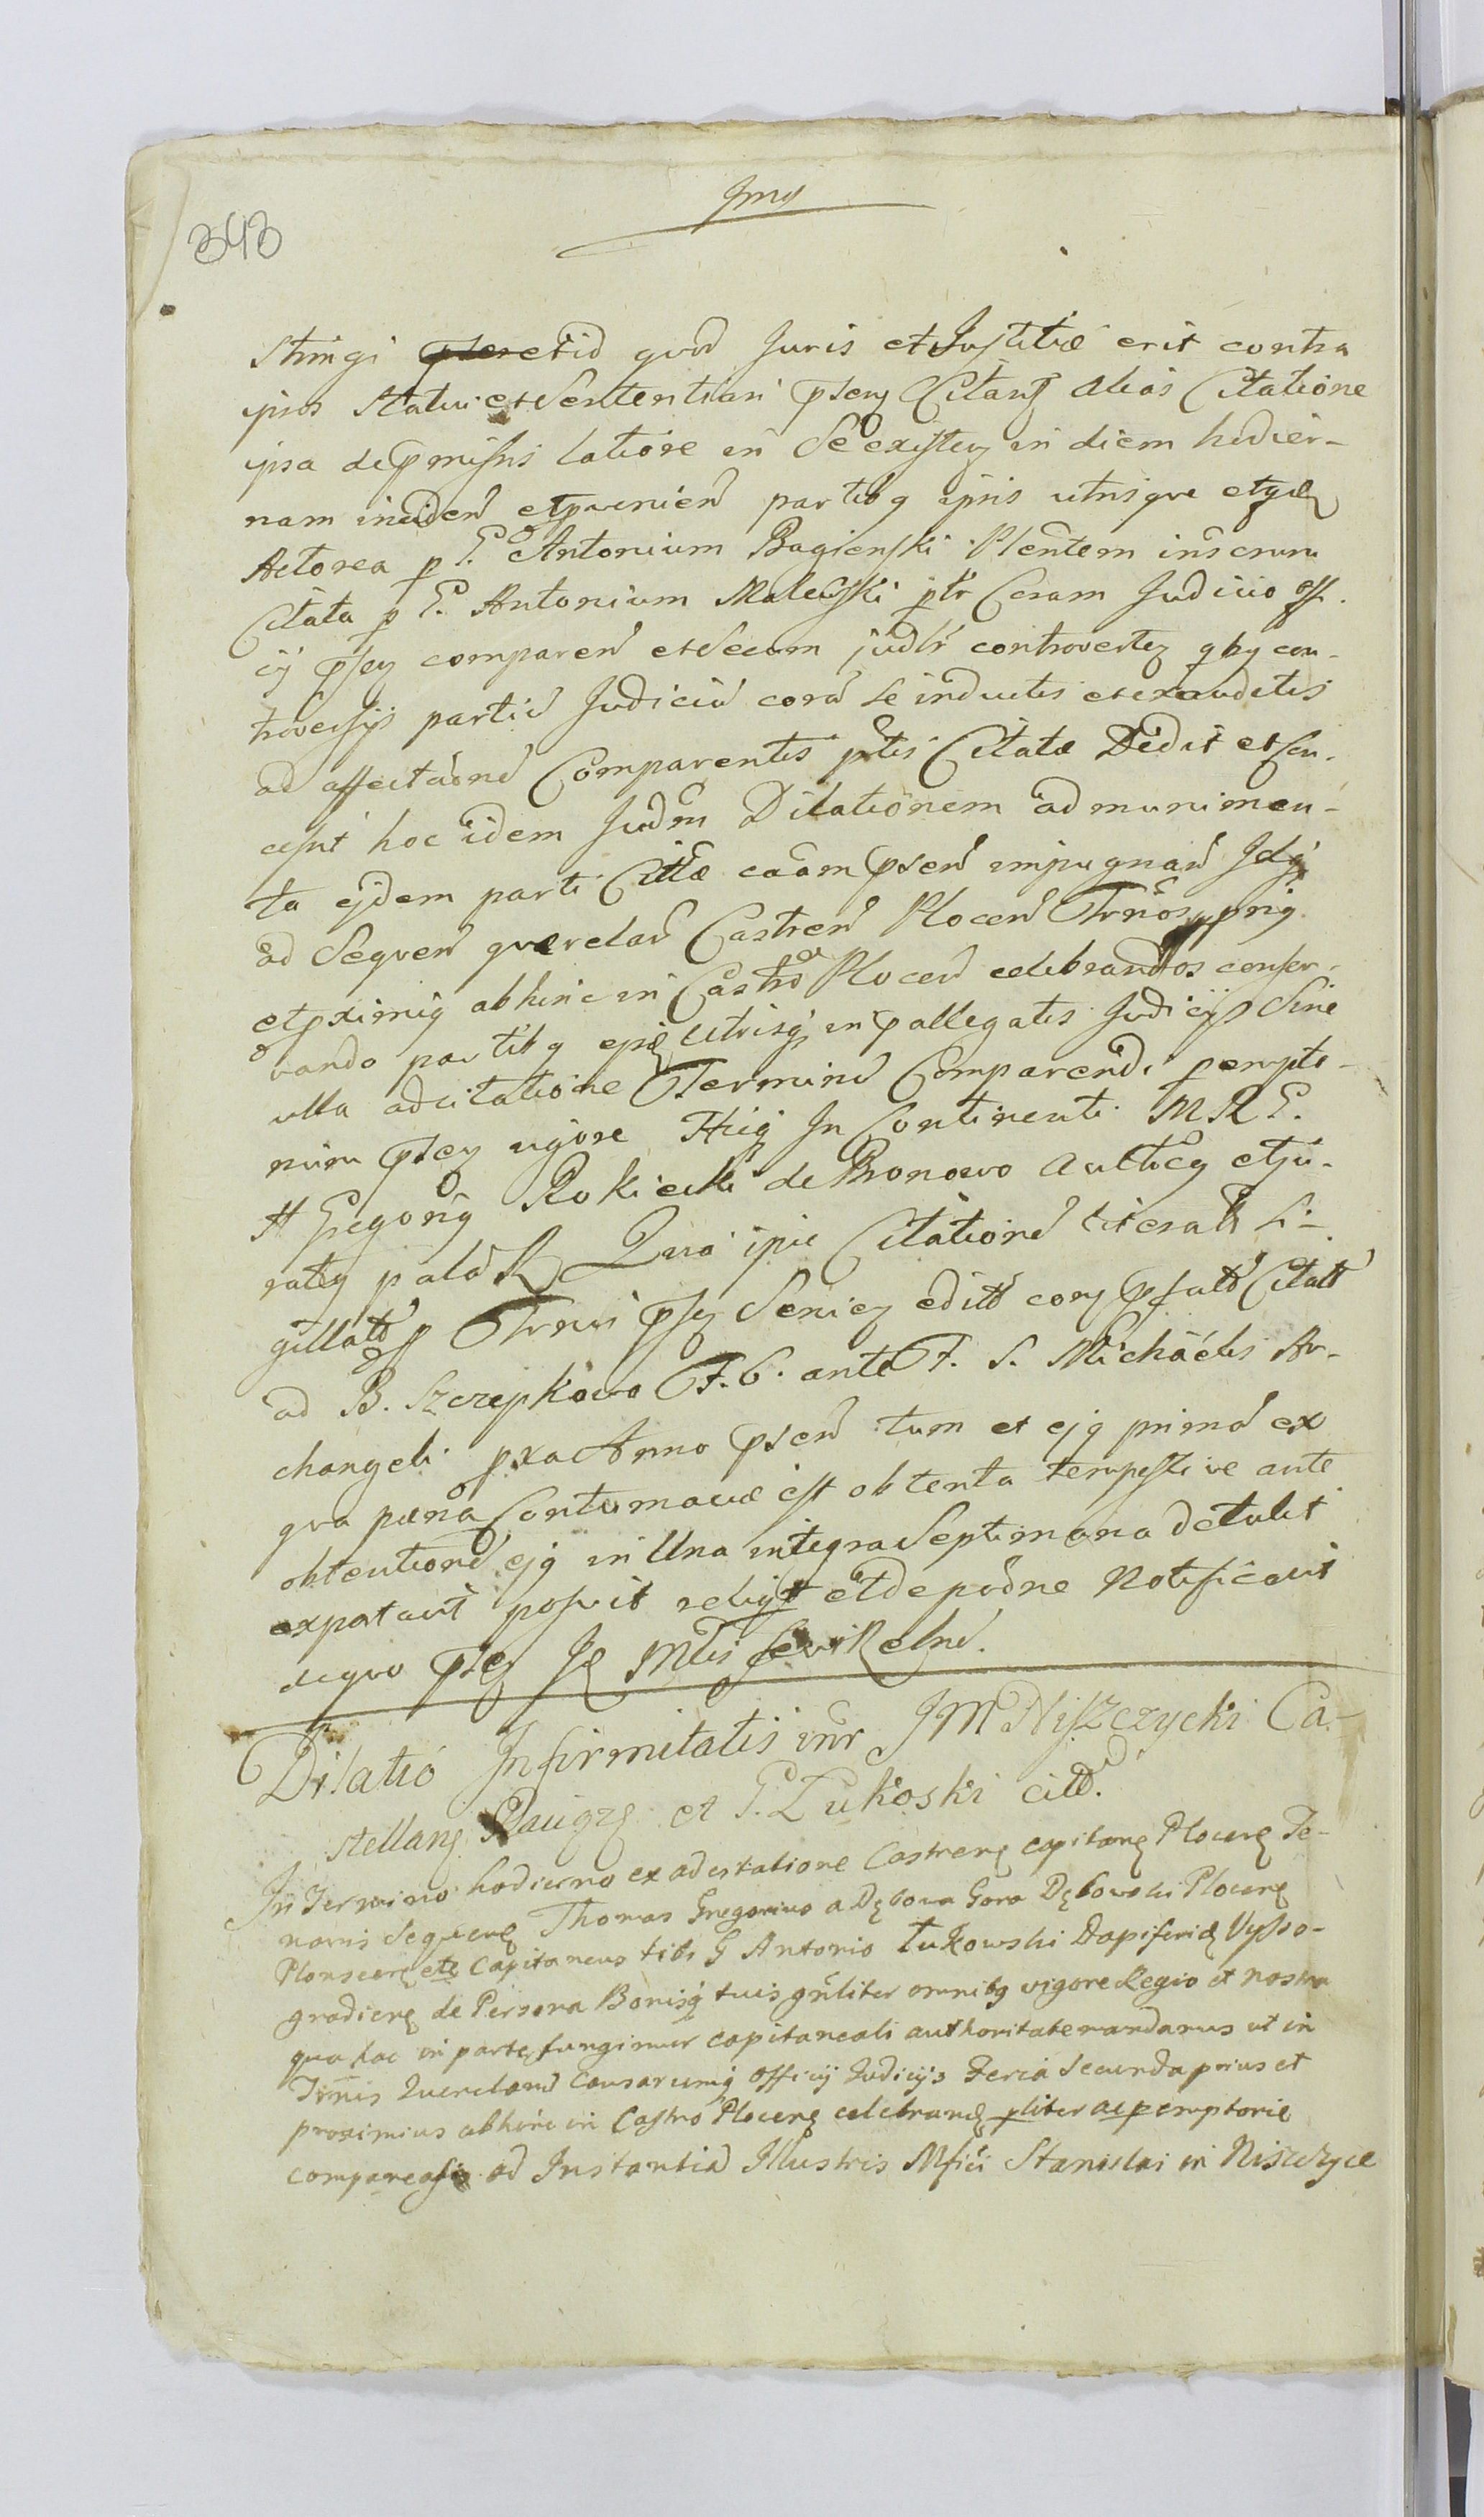 Img
343
stringi et id quod Juris et Justitiæ erit contra
ipsos statui et Sententiari Citan alias Citatione
ipsa de pmissis latiore in Se existen in diem hodier-
nam inciden et pvenien partibq ipsis utrisque et qdẽ
Actorea p G. Antonium Bagienski Plentem in scrim
Citata p G. Antonium Malewski ptr Coram Judicio off.
cij comparen et Secum judlr controverten qbq con-
troversijs partiũ Judiciũ corã se inductis et exauditis
ad affectãonẽ Comparentis ptis Citatæ Dedit et con-
cessit hoc idem Judm Dilationem ad munimen-
ta ejdem parti Cittæ caãm psen impugnan Idq
ad Sequen quærelar Castren Plocen Trños prig
et pximiq abhinc in Castro Plocen celebrandos conser-
vando partibq Utrisq in pallegatis Judicijs Sine
ulla adcitatione Terminũ Comparendi perempto-
rium vigore Hujq In Continenti M R G.
H Gregorig Rokicki de Bronowo Aulticq et ju-
ratq palã R. Quia ipse Citationẽ literalẽ Si-
gillatã p Trnis psen edittã Citatã
ad B. Szczepkowo F. 6. ante F. S. Michaelis Ar-
changeli pxa Anno psen tum et ejq primã ex
qva pæna Contumaciæ est obtenta tempestive ante
obtentionẽ ejq in Una integra Septimana detulit
exportavit posuit reliqt et de pðne Notificavit
de quo Relnẽ.
Dilatio Infirmitatis intr J M Niszczycki Ca-
stellan et G. Łukoski citt.
In Termino hodierno ex adcitatione Castren capitan Plocen Te-
noris Sequen Thomas Gregorius a Dębowa Gora Dębowski Plocen
Plonscen etc Capitaneus tibi G Antonio Łukowski Dapiferidæ Vysso-
gradien de Persona Bonisq tuis gñliter omnibq vigore Regio et nostra
qua hac in parte fungimur capitaneali authoritate mandamus ut in
Trñis Querelarũ Causarumq officij Judicijs Feria Secunda prius et
proximius abhinc in Castro Plocen celebran pliter ac peremptorie
compareas ad Instantiã Illustris Mfici Stanislai in Niszczyce